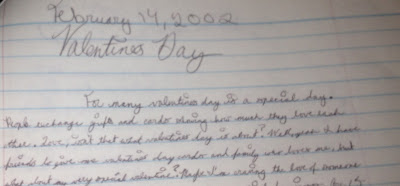 February 14, 2002
Valentines Day
For many valentines day is a especial day.
People exchange gifts and cards showing how much they love each
other. Love, isn't that what valentines day is about? Well yeah I have
friends to give me valentines day cards and family who loves me, but
what about my very special valentine? Maybe I'm missing the love of someone